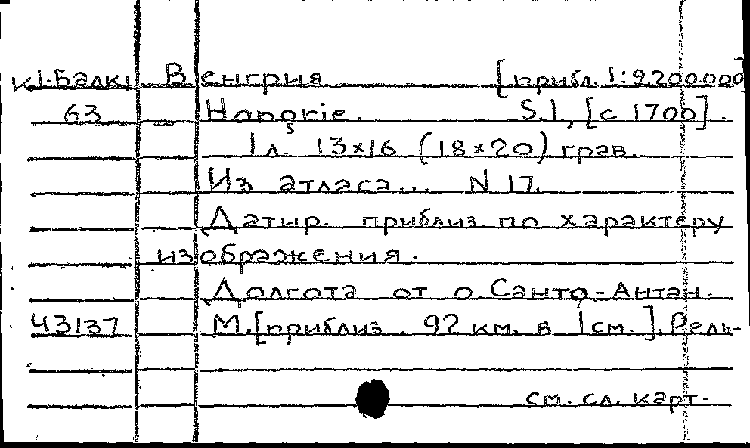 К1.Балк. Венгрия [прибл. 1:9200000]
63 Hongrie. S.l., [с 1700].
1 л. 13×16 (18×20) грав.
Из атласа... N 17.
Датир. приблиз по характеру
изображения.
Долгота от о. Санто-Антан.
43137 М.[приблиз. 92 км. в 1 см.]. Рель-
см. сл. карт.